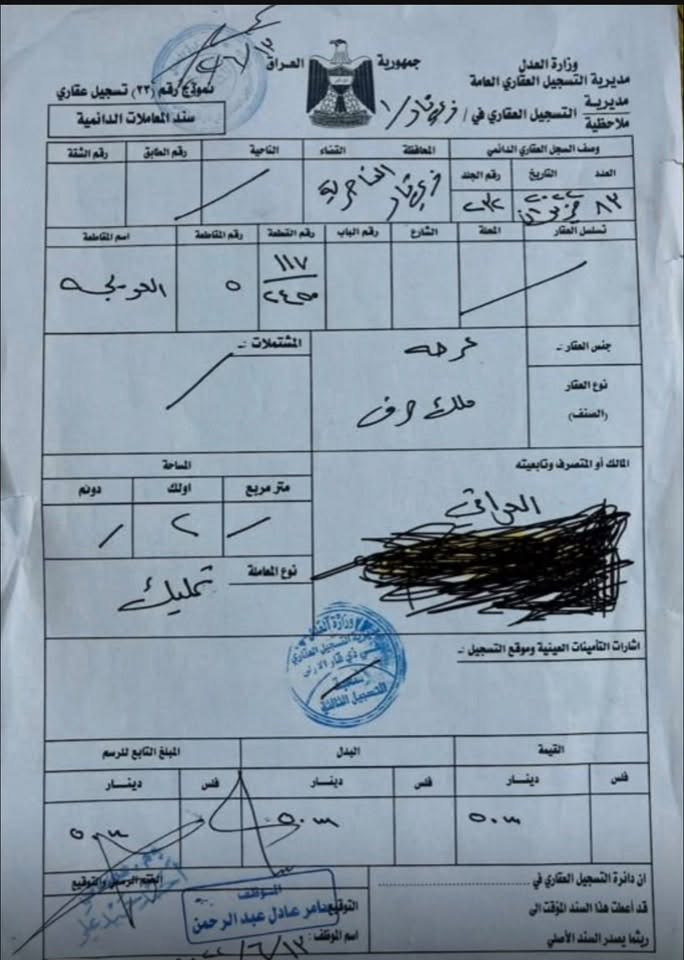 جمهورية العراق
وزارة العدل
مديرية التسجيل العقاري العامة
مديرية
ملاحظية
التسجيل العقاري في / ذي قار / ١
نموذج رقم (٢٣) تسجيل عقاري
سند المعاملات الدائمية
وصف السجل العقاري الدائمي المحافظة القضاء الناحية رقم الطابق رقم الشقة
العدد التاريخ رقم الجلد
٨٣ حزيران ٢٠٢٢ ٢٣٢ ذي قار الناصرية
تسلسل العقار المحلة الشارع رقم الباب رقم القطعة رقم المقاطعة اسم المقاطعة
١١٧
٥ العويجه
جنس العقار :- عرصه
المشتملات :-
نوع العقار
(الصنف)
ملك صرف
المالك أو المتصرف وتابعيته
العراقي
المساحة
متر مربع اولك دونم
٢
نوع المعاملة تمليك
اشارات التأمينات العينية وموقع التسجيل :-
وزارة العدل
التسجيل العقاري
في ذي قار الاولى
القيمة البدل المبلغ التابع للرسم
فلس دينار فلس دينار فلس دينار
ان دائرة التسجيل العقاري في
قد أعطت هذا السند المؤقت الى
ريثما يصدر السند الأصلي
الختم الرسمي والتوقيع
التوقيع
اسم الموظف :
الموظف
سامر عادل عبد الرحمن